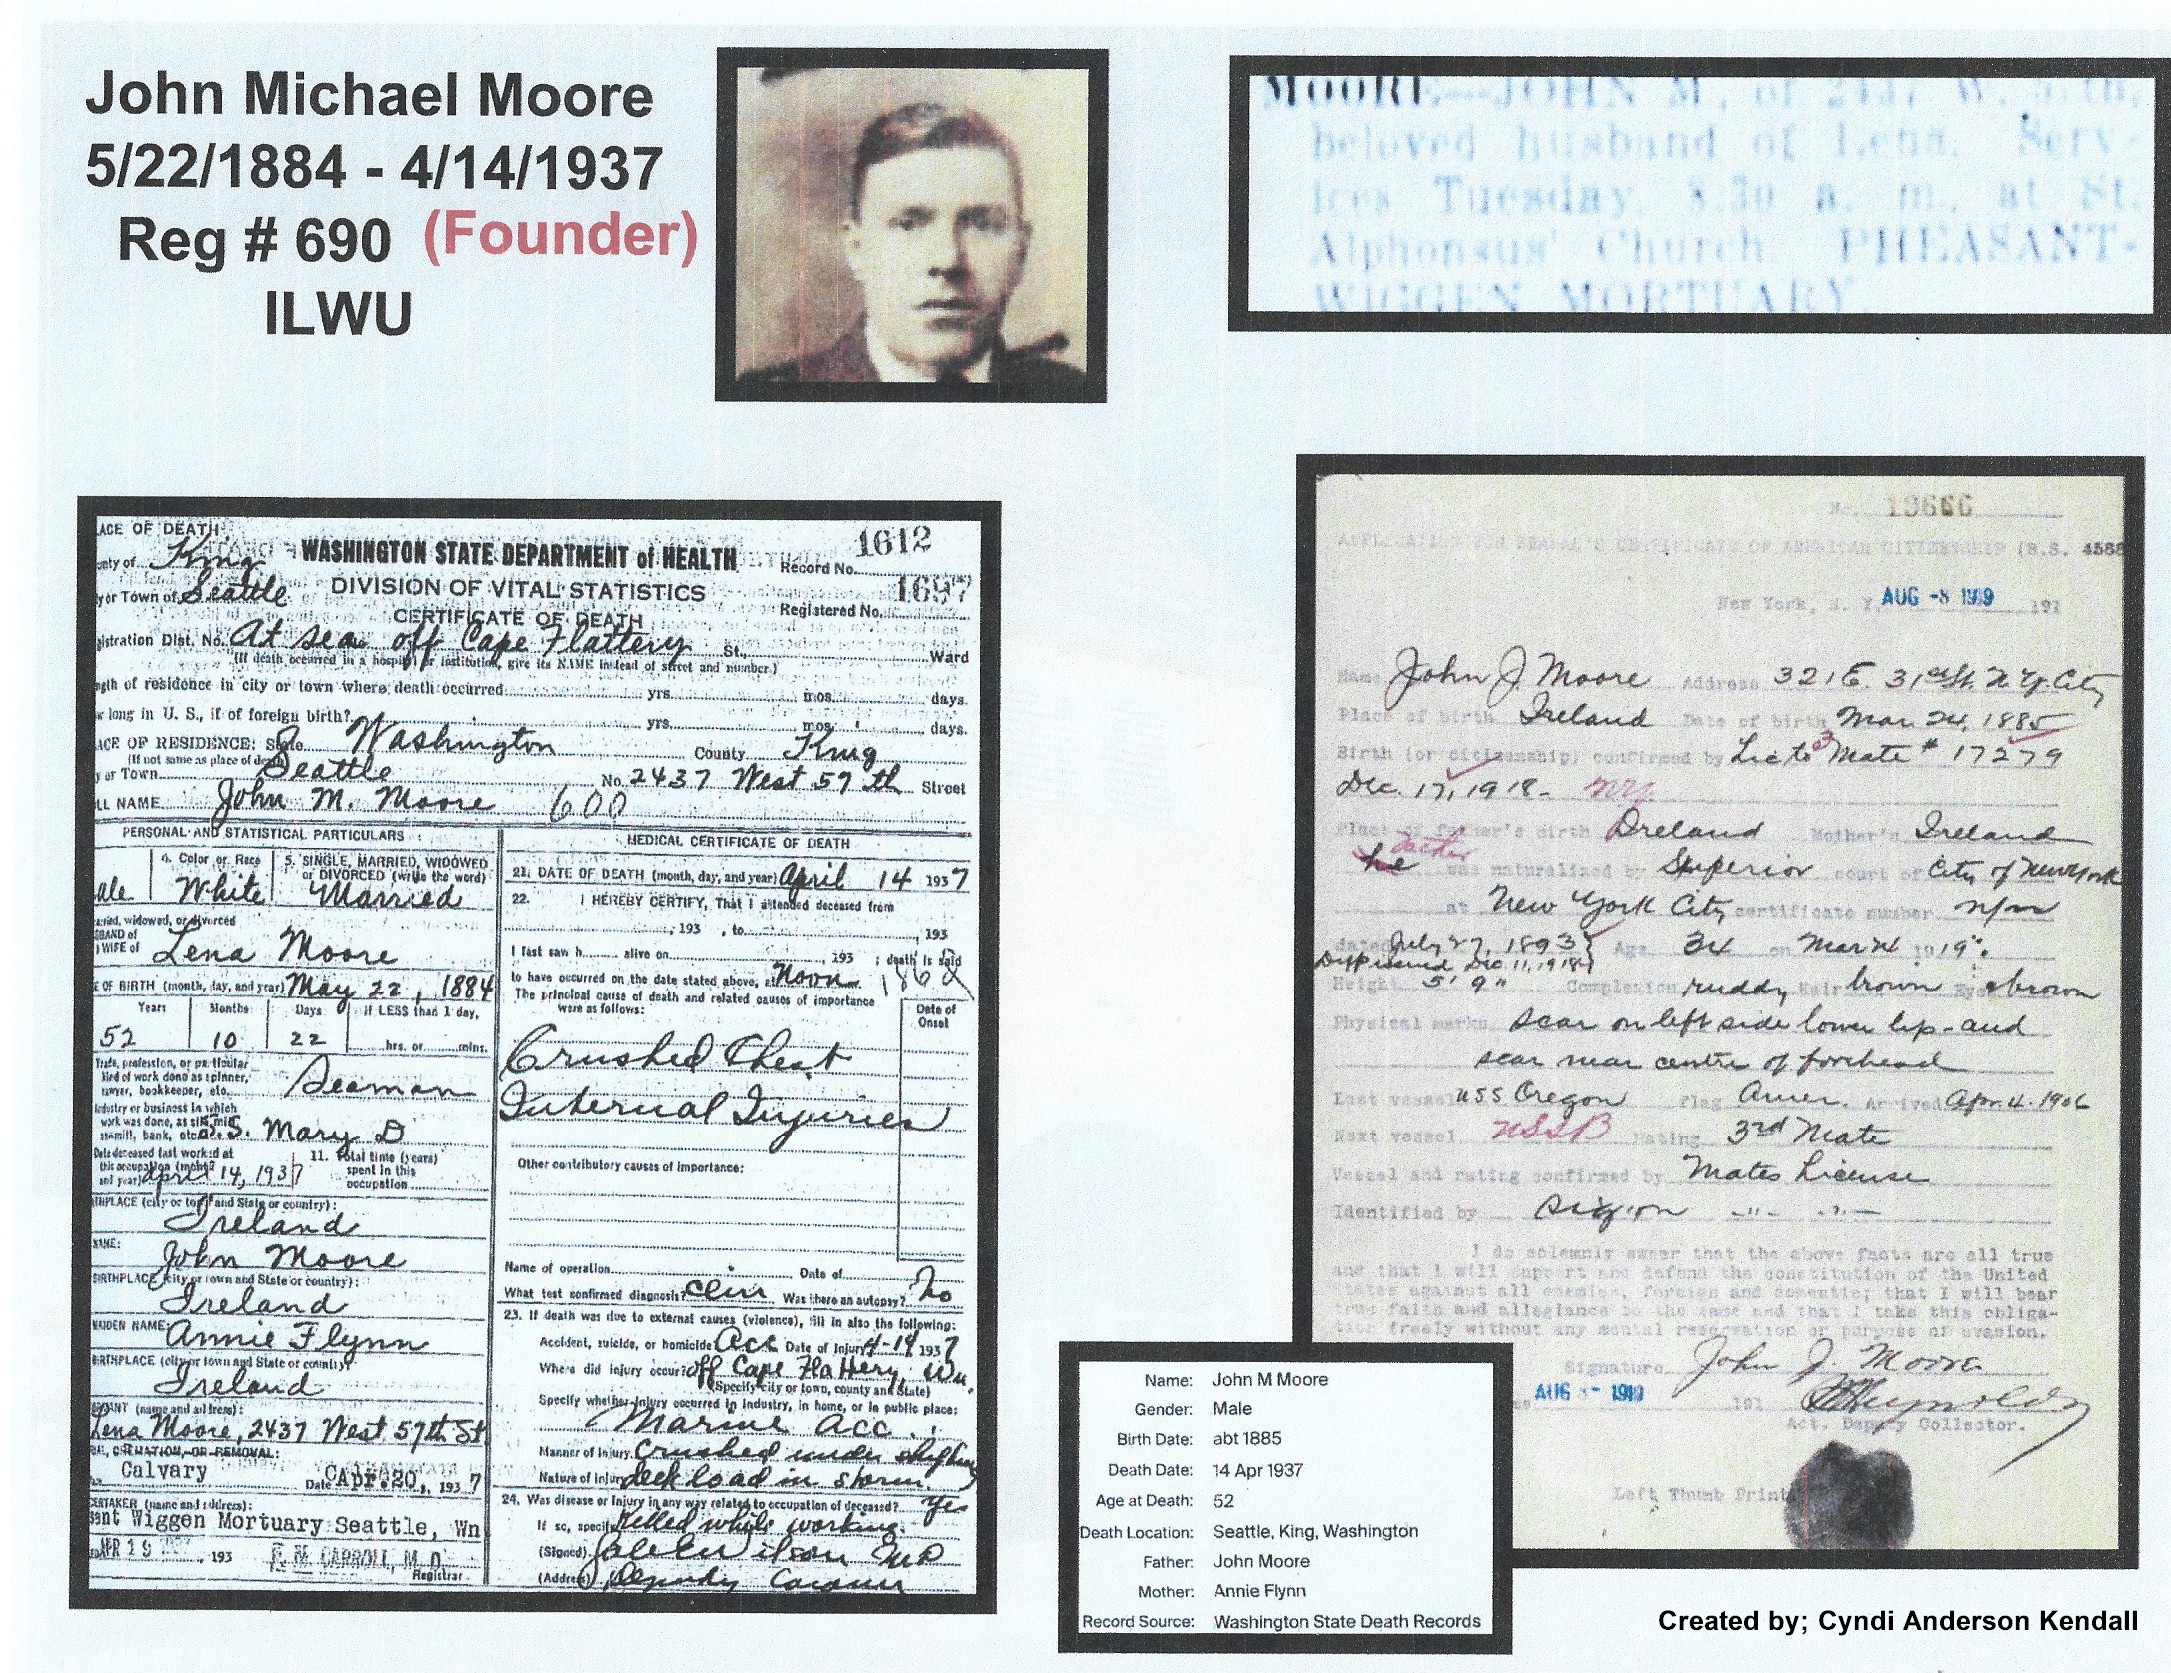 John Michael Moore
5/22/1884 - 4/14/1937
Reg # 690 (Founder)
ILWU
MOORE—JOHN M., of
beloved husband of Lena. Serv-
ices Tuesday, 8:30 a. m., at St.
Alphonsus' Church. PHEASANT-
WIGGEN MORTUARY
ACE OF DEATH
nty of King
y or Town of Seattle
WASHINGTON STATE DEPARTMENT of HEALTH
DIVISION OF VITAL STATISTICS
CERTIFICATE OF DEATH
1612
Record No.
1697
Registered No.
istration Dist. No. At sea off Cape Flattery St., Ward
(If death occurred in a hospital or institution, give its NAME instead of street and number.)
ngth of residence in city or town where death occurred yrs. mos. days.
w long in U. S., if of foreign birth? yrs. mos. days.
ACE OF RESIDENCE: State Washington County King
(If not same as place of death)
y or Town Seattle No. 2437 West 57th Street
LL NAME John M. Moore 600
PERSONAL AND STATISTICAL PARTICULARS
4. Color or Race 5. SINGLE, MARRIED, WIDOWED
or DIVORCED (write the word)
ale White Married
ried, widowed, or divorced
SBAND of
) WIFE of Lena Moore
E OF BIRTH (month, day, and year) May 22, 1884
Years Months Days If LESS than 1 day,
52 10 22 hrs. or mins.
Trade, profession, or particular
kind of work done as spinner,
sawyer, bookkeeper, etc. Seaman
Industry or business in which
work was done, as silk mill,
sawmill, bank, etc. S.S. Mary D
Date deceased last worked at
this occupation (month
and year) April 14, 1937
11. Total time (years)
spent in this
occupation
THPLACE (city or town and State or country):
Ireland
NAME:
John Moore
BIRTHPLACE (city or town and State or country):
Ireland
MAIDEN NAME: Annie Flynn
BIRTHPLACE (city or town and State or country):
Ireland
MANT (name and address):
Lena Moore, 2437 West 57th St
AL, CREMATION, OR REMOVAL:
Calvary Date Apr. 20, 1937
ERTAKER (name and address):
sant Wiggen Mortuary Seattle, Wn
APR 19 , 193 CARROLL, M.D.
Registrar
MEDICAL CERTIFICATE OF DEATH
21. DATE OF DEATH (month, day, and year) April 14 1937
22. I HEREBY CERTIFY, That I attended deceased from
, 193 , to , 193
I last saw h alive on , 193 ; death is said
to have occurred on the date stated above, at Noon
The principal cause of death and related causes of importance
were as follows:
Date of
Onset
Crushed Chest
Internal Injuries
Other contributory causes of importance:
Name of operation Date of
What test confirmed diagnosis? Clin Was there an autopsy? No
23. If death was due to external causes (violence), fill in also the following:
Accident, suicide, or homicide Acc Date of Injury 4-14 1937
Where did injury occur? off Cape Flattery, Wn.
(Specify city or town, county and State)
Specify whether injury occurred in industry, in home, or in public place:
Marine Acc.
Manner of Injury Crushed under shifting
Nature of Injury deck load in storm.
24. Was disease or injury in any way related to occupation of deceased? Yes
If so, specify Killed while working.
(Signed) Wilson MD
(Address) Deputy Coroner
No. 13666
APPLICATION FOR SEAMAN'S CERTIFICATE OF AMERICAN CITIZENSHIP (R.S. 4588
New York, N. Y. AUG -8 1919 191
Name John J. Moore Address 321 E. 31st St. N.Y. City
Place of birth Ireland Date of birth Mar. 24, 1885
Birth (or citizenship) confirmed by Lic to 3 Mate # 17279
Dec. 17, 1918- NY
Place of father's birth Ireland Mother's Ireland
he father was naturalized by Superior court of City of New York
at New York City certificate number n/m
dated July 27, 1893 Age 34 on Mar 24 1919.
Dup issued Dec 11, 1918
Height 5' 9" Complexion ruddy Hair brown Eyes brown
Physical marks scar on left side lower lip - and
scar near centre of forehead
Last vessel USS Oregon Flag Amer. Arrived Apr. 4. 1906
Next vessel USSB Rating 3rd Mate
Vessel and rating confirmed by Mates License
Identified by
I do solemnly swear that the above facts are all true
and that I will support and defend the constitution of the United
States against all enemies, foreign and domestic; that I will bear
true faith and allegiance to the same and that I take this obliga-
tion freely without any mental reservation or purpose of evasion.
Signature John J. Moore
AUG 1919 191
Act. Deputy Collector.
Left Thumb Print
Name: John M Moore
Gender: Male
Birth Date: abt 1885
Death Date: 14 Apr 1937
Age at Death: 52
Death Location: Seattle, King, Washington
Father: John Moore
Mother: Annie Flynn
Record Source: Washington State Death Records
Created by; Cyndi Anderson Kendall